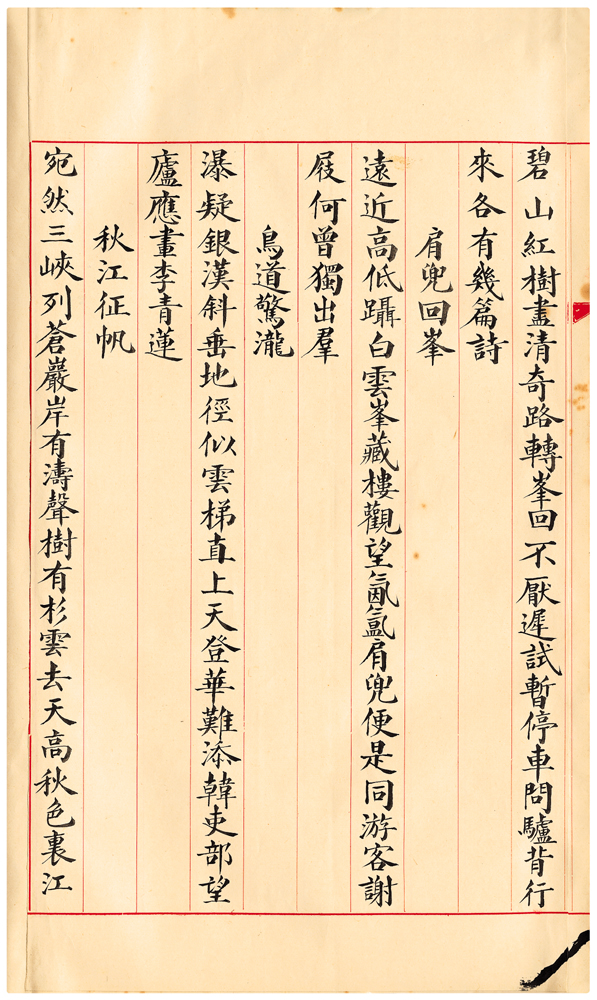 碧山紅樹盡清奇路轉峯回不厭遲試暫停車問驢背行
來各有幾篇詩
肩兜回峯
遠近高低躡白雲峯藏樓觀望氤氳肩兜便是同游客謝
屐何曾獨出羣
鳥道驚瀧
瀑疑銀漢斜垂地徑似雲梯直上天登華難添韓吏部望
廬應畫李青蓮
秋江征帆
宛然三峽列蒼巖岸有濤聲樹有杉雲去天高秋色裏江